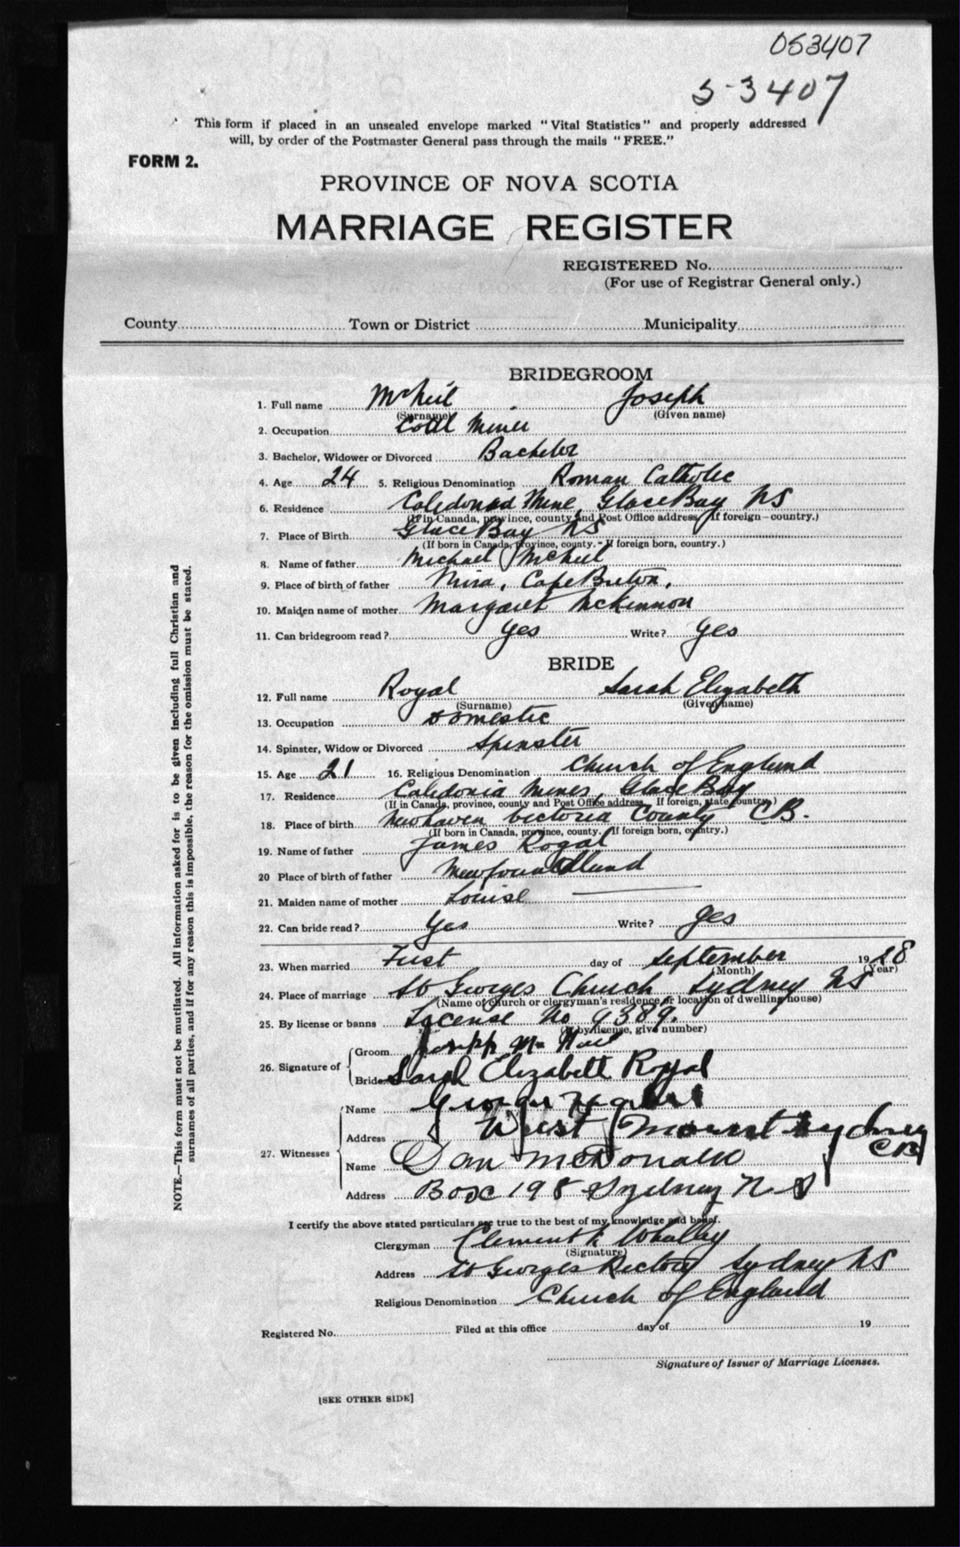 053407
53407
This form if placed in an unsealed envelope marked "Vital Statistics" and properly addressed
will, by order of the Postmaster General pass through the mails "FREE."
FORM 2.
PROVINCE OF NOVA SCOTIA
MARRIAGE REGISTER
REGISTERED No.
(For use of Registrar General only.)
County Town or District Municipality
BRIDEGROOM
1. Full name McNeil Joseph
(Surname) (Given name)
2. Occupation Coal Miner
3. Bachelor, Widower or Divorced Bachelor
4. Age 24 5. Religious Denomination Roman Catholic
6. Residence Caledonia Mine, Glace Bay NS
(If in Canada, province, county and Post Office address. If foreign—country.)
7. Place of Birth Glace Bay NS
(If born in Canada, province, county.—If foreign born, country.)
8. Name of father Michael McNeil
9. Place of birth of father Mira, Cape Breton,
10. Maiden name of mother Margaret McKinnon
11. Can bridegroom read? Yes Write? Yes
BRIDE
12. Full name Royal Sarah Elizabeth
(Surname) (Given name)
13. Occupation Domestic
14. Spinster, Widow or Divorced Spinster
15. Age 21 16. Religious Denomination Church of England
17. Residence Caledonia Mines, Glace Bay
(If in Canada, province, county and Post Office address. If foreign, state country.)
18. Place of birth Newhaven Victoria County CB.
(If born in Canada, province, county. If foreign born, country.)
19. Name of father James Royal
20 Place of birth of father Newfoundland
21. Maiden name of mother Louise
22. Can bride read? Yes Write? Yes
23. When married First day of September 1928
(Month) (Year)
24. Place of marriage St Georges Church Sydney NS
(Name of church or clergyman's residence or location of dwelling house)
25. By license or banns License No 9389.
(If by license, give number)
26. Signature of Groom Joseph Mc Neil
Bride Sarah Elizabeth Royal
27. Witnesses
Name George
Address West mount Sydney
CB
Name Dan McDonald
Address Box 198 Sydney N S
I certify the above stated particulars are true to the best of my knowledge and belief.
Clergyman Clement Whalley
(Signature)
Address St Georges Rectory Sydney NS
Religious Denomination Church of England
Registered No. Filed at this office day of 19
Signature of Issuer of Marriage Licenses.
[SEE OTHER SIDE]
NOTE.—This form must not be mutilated. All information asked for is to be given including full Christian and
surnames of all parties, and if for any reason this is impossible, the reason for the omission must be stated.